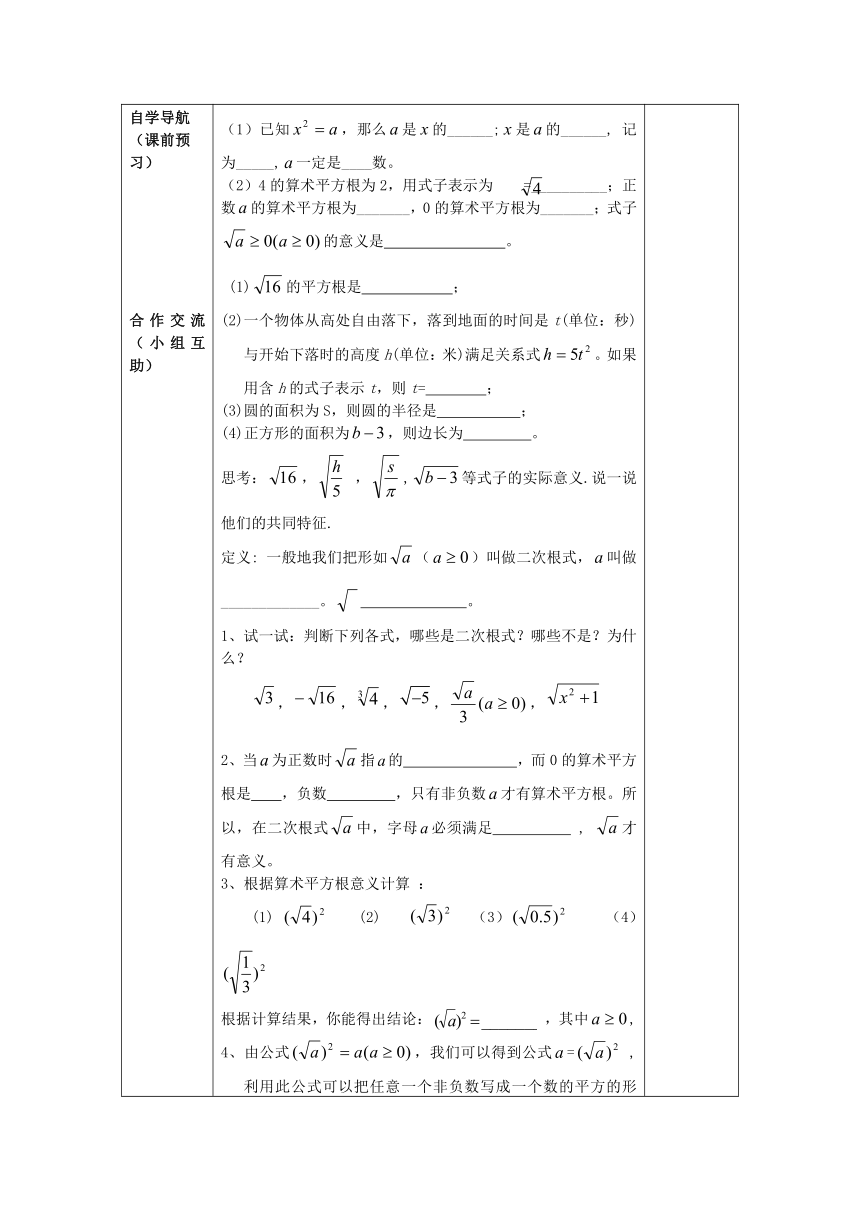 自学导航
（课前预
习）
（1）已知x² = a，那么a是x的______；x是a的______，记
为_____，a一定是____数。
（2）4的算术平方根为2，用式子表示为 √4=__________；正
数a的算术平方根为_______，0的算术平方根为_______；式子
√a ≥ 0(a ≥ 0)的意义是________________。
(1)√16的平方根是____________；
合作交流
（小组互
助）
(2)一个物体从高处自由落下，落到地面的时间是t(单位：秒)
与开始下落时的高度h(单位：米)满足关系式h = 5t²。如果
用含h的式子表示t，则t=________；
(3)圆的面积为S，则圆的半径是___________；
(4)正方形的面积为b－3，则边长为_________。
思考：√16，√(h/5)，√(s/π)，√(b－3)等式子的实际意义.说一说
他们的共同特征.
定义：一般地我们把形如√a（a ≥ 0）叫做二次根式，a叫做
_____________。√ ______________。
1、试一试：判断下列各式，哪些是二次根式？哪些不是？为什
么？
√3，－√16，∛4，√－5，√a/3 (a ≥ 0)，√(x² +1)
2、当a为正数时√a指a的_______________，而0的算术平方
根是____，负数_________，只有非负数a才有算术平方根。所
以，在二次根式√a中，字母a必须满足__________ ，√a才
有意义。
3、根据算术平方根意义计算 ：
(1) (√4)² (2) (√3)² （3）(√0.5)² （4）
(√(1/3))²
根据计算结果，你能得出结论：(√a)² =________ ，其中a ≥ 0,
4、由公式(√a)² = a(a ≥ 0)，我们可以得到公式a=(√a)² ,
利用此公式可以把任意一个非负数写成一个数的平方的形